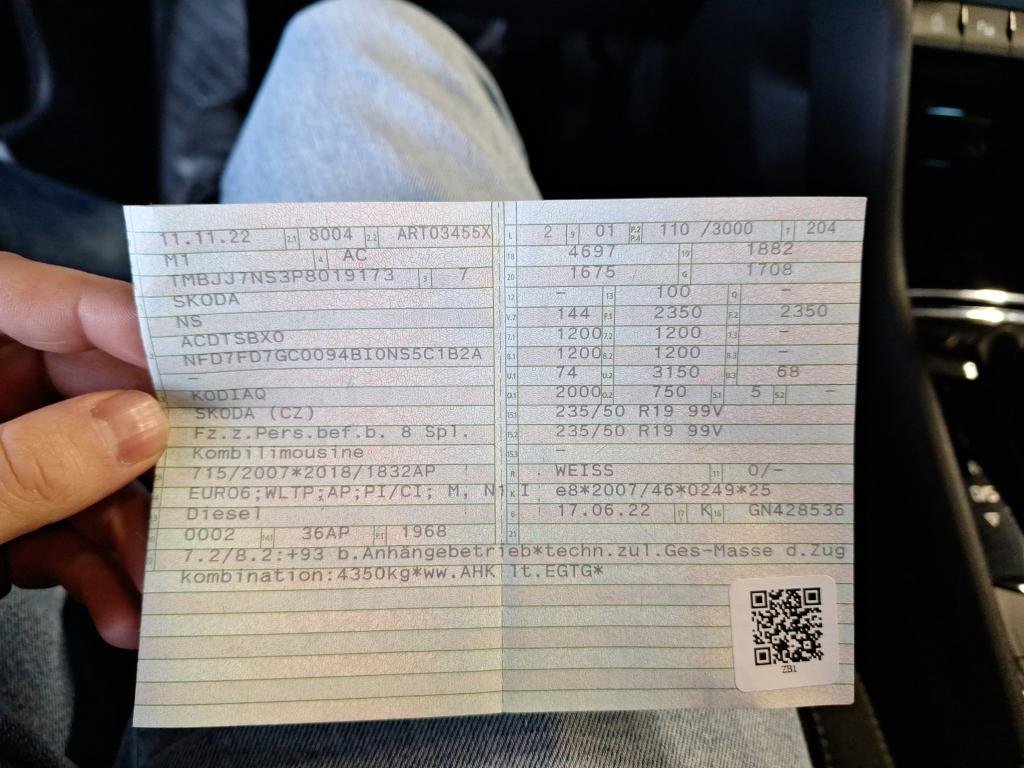 11.11.22 2.1 8004 2.2 ART03455X L 2 9 01 P.2 P.4 110 /3000 T 204
M1 4 AC 18 4697 19 1882
TMBJJ7NS3P8019173 3 7 20 1675 G 1708
SKODA 12 – 13 100 Q –
NS V.7 144 F.1 2350 F.2 2350
ACDTSBX0 7.1 1200 7.2 1200 7.3 –
NFD7FD7GC0094BI0NS5C1B2A 8.1 1200 8.2 1200 8.3 –
– U.1 74 U.2 3150 U.3 68
KODIAQ O.1 2000 O.2 750 S.1 5 S.2 –
SKODA (CZ) 15.1 235/50 R19 99V
Fz.z.Pers.bef.b. 8 Spl. 15.2 235/50 R19 99V
Kombilimousine 15.3 –
715/2007*2018/1832AP R WEISS 11 0/–
EURO6;WLTP;AP;PI/CI; M, N1 I K e8*2007/46*0249*25
Diesel 6 17.06.22 17 K 16 GN428536
0002 14.1 36AP P.1 1968 21
22 7.2/8.2:+93 b.Anhängebetrieb*techn.zul.Ges-Masse d.Zug
kombination:4350kg*ww.AHK lt.EGTG*
ZB1